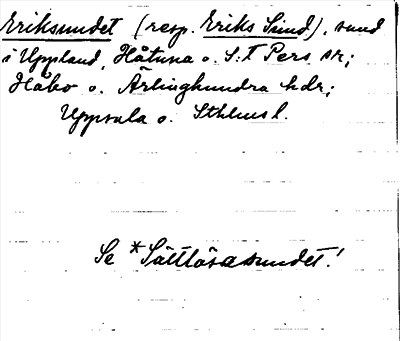 Eriksundet (resp. Eriks Sund), sund
i Uppland, Håtuna o. S:t Pers snr;
Håbo o. Ärlinghundra hdr;
Uppsala o. Sthlms l.
Se *Sättlösasundet!